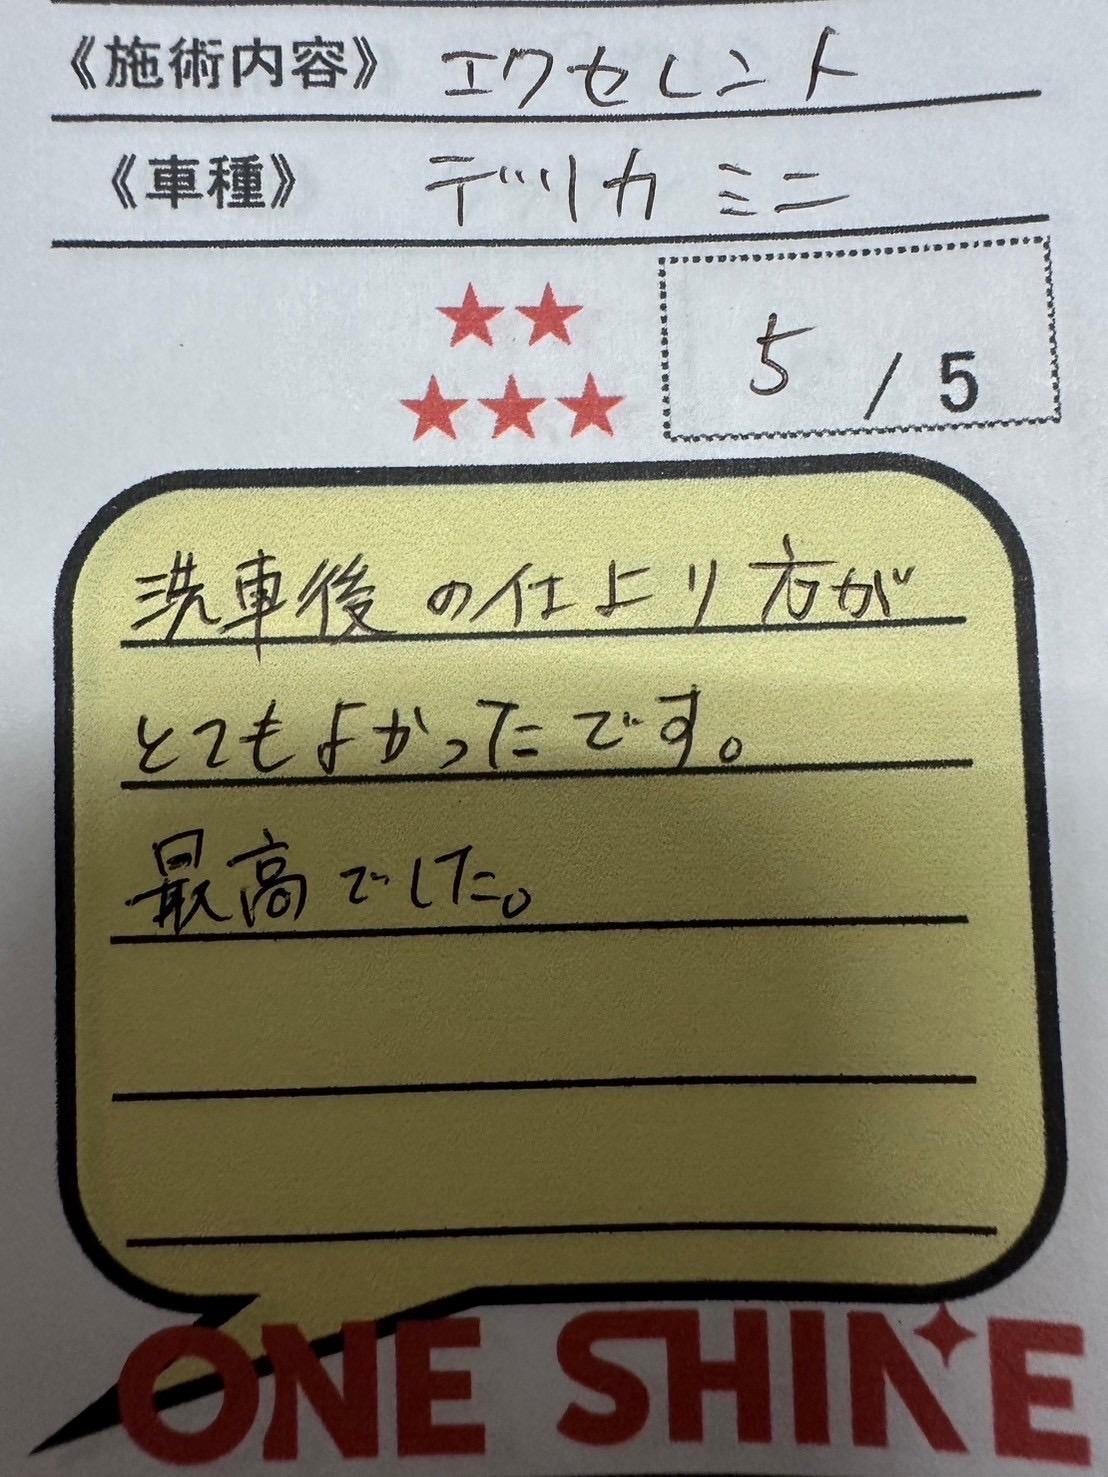 《施術内容》 エクセレント
《車種》 デリカミニ
★★
★★★
5 / 5
洗車後の仕より方が
とてもよかったです。
最高でした。
ONE SHINE